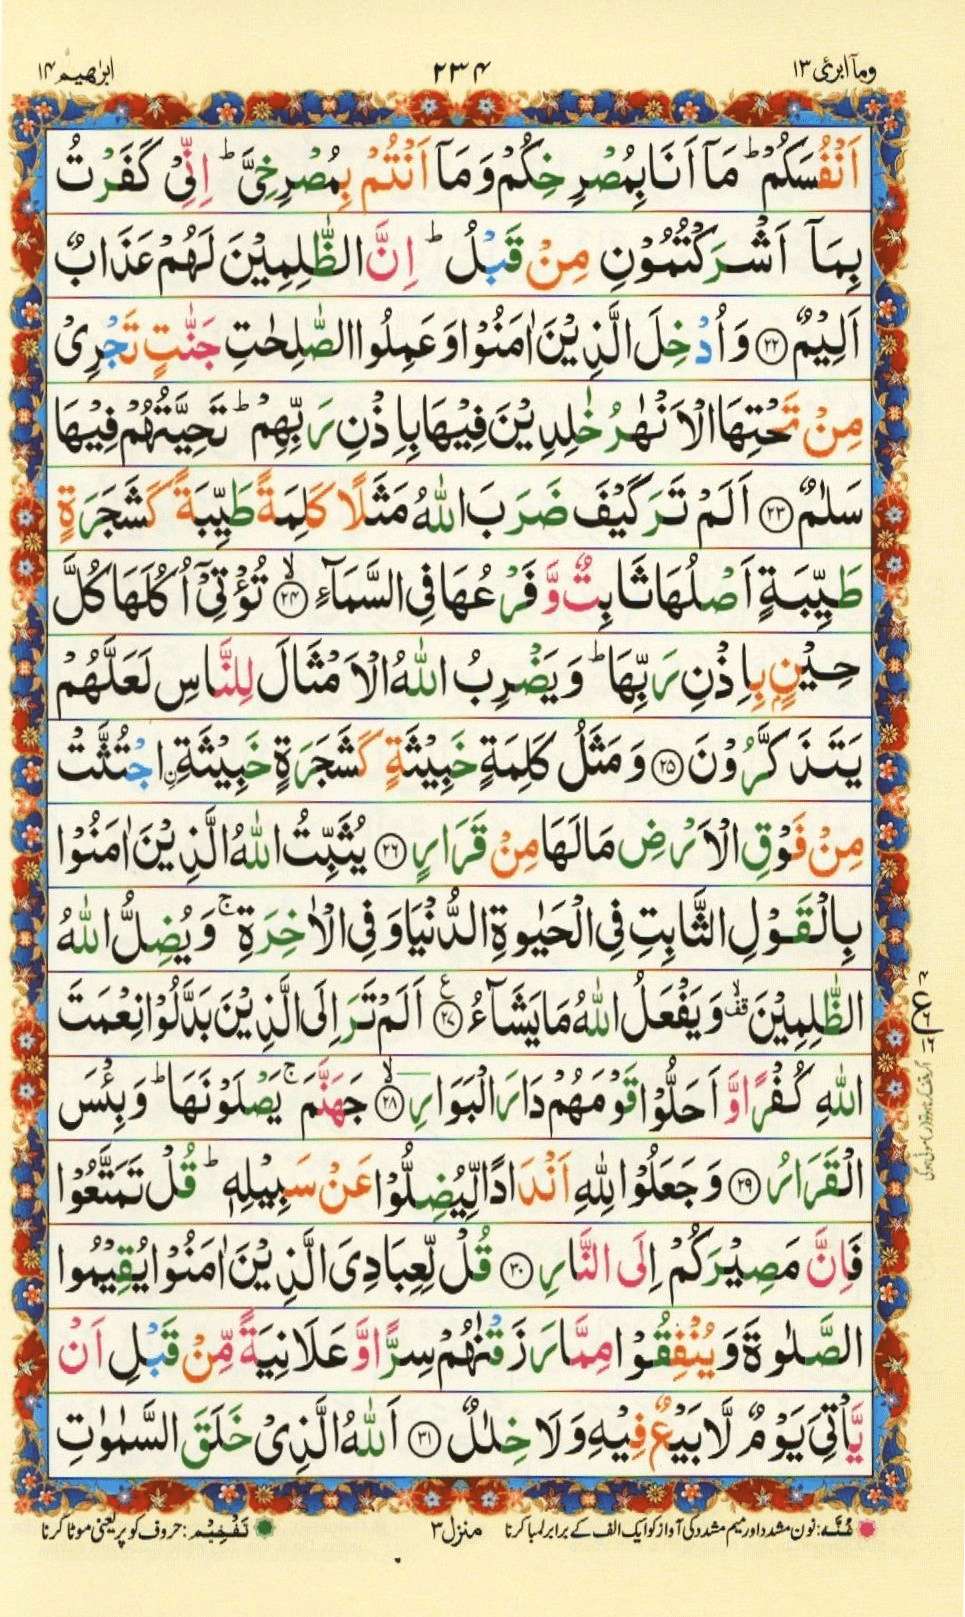 ومآ ابرئ ١٣
٢٣٤
ابرٰهيم ١٤
اَنْفُسَكُمْ ؕ مَاۤ اَنَا بِمُصْرِخِكُمْ وَ مَاۤ اَنْتُمْ بِمُصْرِخِیَّ ؕ اِنِّیْ كَفَرْتُ
بِمَاۤ اَشْرَكْتُمُوْنِ مِنْ قَبْلُ ؕ اِنَّ الظّٰلِمِیْنَ لَهُمْ عَذَابٌ
اَلِیْمٌ ﴿۲۲﴾ وَ اُدْخِلَ الَّذِیْنَ اٰمَنُوْا وَ عَمِلُوا الصّٰلِحٰتِ جَنّٰتٍ تَجْرِیْ
مِنْ تَحْتِهَا الْاَنْهٰرُ خٰلِدِیْنَ فِیْهَا بِاِذْنِ رَبِّهِمْ ؕ تَحِیَّتُهُمْ فِیْهَا
سَلٰمٌ ﴿۲۳﴾ اَلَمْ تَرَ كَیْفَ ضَرَبَ اللّٰهُ مَثَلًا كَلِمَةً طَیِّبَةً كَشَجَرَةٍ
طَیِّبَةٍ اَصْلُهَا ثَابِتٌ وَّ فَرْعُهَا فِی السَّمَآءِ ﴿ۙ۲۴﴾ تُؤْتِیْۤ اُكُلَهَا كُلَّ
حِیْنٍۭ بِاِذْنِ رَبِّهَا ؕ وَ یَضْرِبُ اللّٰهُ الْاَمْثَالَ لِلنَّاسِ لَعَلَّهُمْ
یَتَذَكَّرُوْنَ ﴿۲۵﴾ وَ مَثَلُ كَلِمَةٍ خَبِیْثَةٍ كَشَجَرَةٍ خَبِیْثَةِ ِ۟اجْتُثَّتْ
مِنْ فَوْقِ الْاَرْضِ مَا لَهَا مِنْ قَرَارٍ ﴿۲۶﴾ یُثَبِّتُ اللّٰهُ الَّذِیْنَ اٰمَنُوْا
بِالْقَوْلِ الثَّابِتِ فِی الْحَیٰوةِ الدُّنْیَا وَ فِی الْاٰخِرَةِ ۚ وَ یُضِلُّ اللّٰهُ
الظّٰلِمِیْنَ ۙ۫ وَ یَفْعَلُ اللّٰهُ مَا یَشَآءُ ﴿۲۷﴾ ع اَلَمْ تَرَ اِلَی الَّذِیْنَ بَدَّلُوْا نِعْمَتَ
اللّٰهِ كُفْرًا وَّ اَحَلُّوْا قَوْمَهُمْ دَارَ الْبَوَارِ ﴿ۙ۲۸﴾ جَهَنَّمَ ۚ یَصْلَوْنَهَا ؕ وَ بِئْسَ
الْقَرَارُ ﴿۲۹﴾ وَ جَعَلُوْا لِلّٰهِ اَنْدَادًا لِّیُضِلُّوْا عَنْ سَبِیْلِهٖ ؕ قُلْ تَمَتَّعُوْا
فَاِنَّ مَصِیْرَكُمْ اِلَی النَّارِ ﴿۳۰﴾ قُلْ لِّعِبَادِیَ الَّذِیْنَ اٰمَنُوْا یُقِیْمُوا
الصَّلٰوةَ وَ یُنْفِقُوْا مِمَّا رَزَقْنٰهُمْ سِرًّا وَّ عَلَانِیَةً مِّنْ قَبْلِ اَنْ
یَّاْتِیَ یَوْمٌ لَّا بَیْعٌ فِیْهِ وَ لَا خِلٰلٌ ﴿۳۱﴾ اَللّٰهُ الَّذِیْ خَلَقَ السَّمٰوٰتِ
غُنَّه: نون مشدد اور میم مشدد کی آواز کو ایک الف کے برابر لمبا کرنا
منزل ۳
تَفْخِیْم: حروف کو پُر یعنی موٹا کرنا